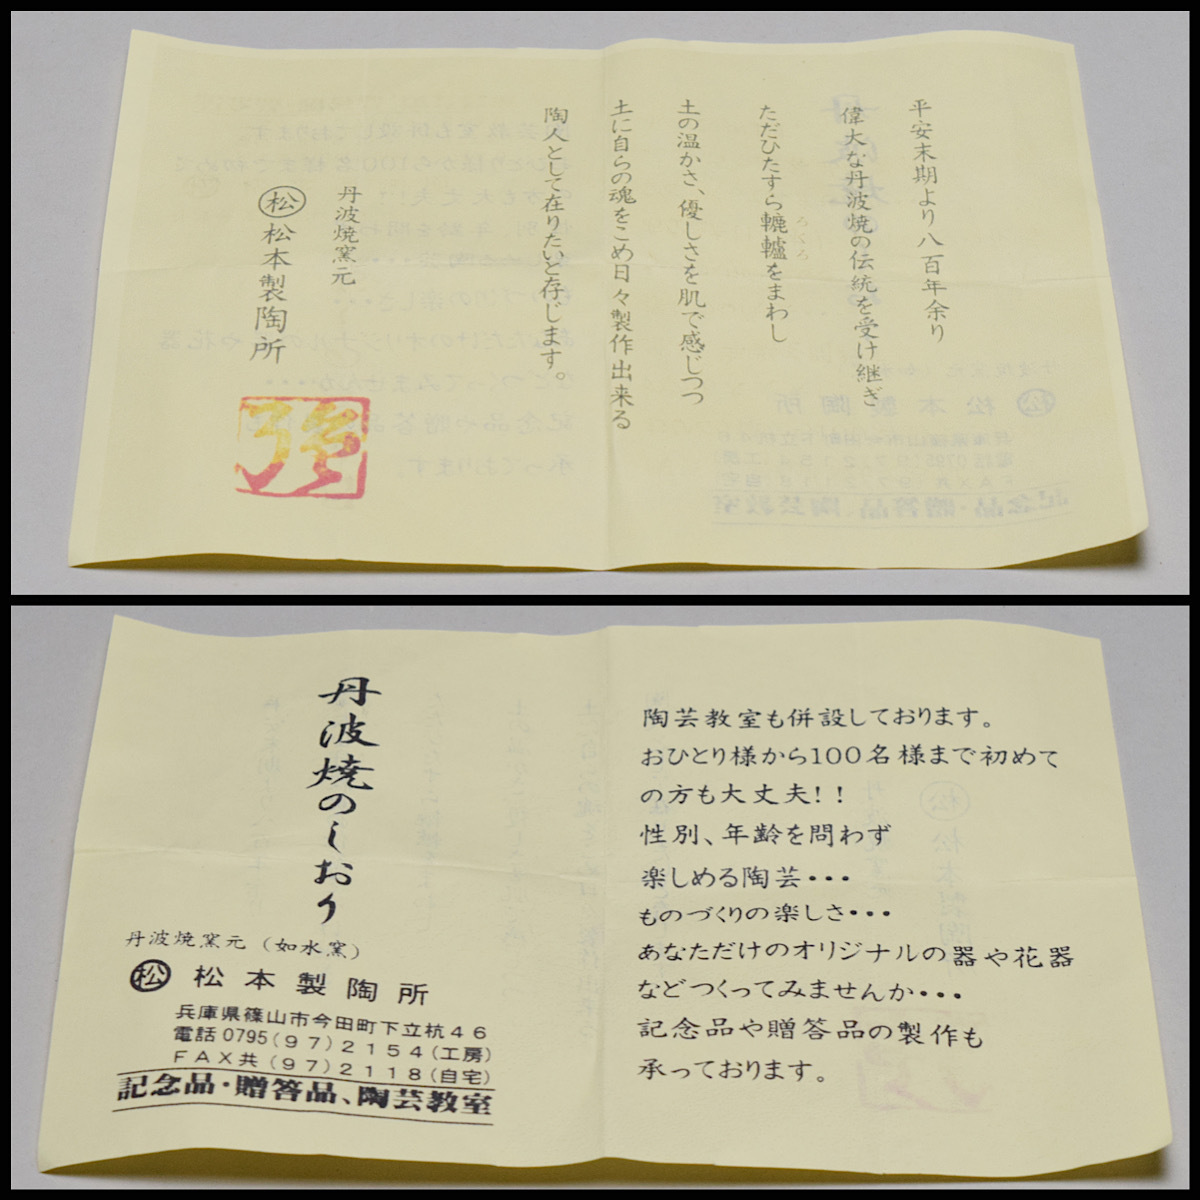 平安末期より八百年余り
偉大な丹波焼の伝統を受け継ぎ
ただひたすら轆轤をまわし
ろくろ
土の温かさ、優しさを肌で感じつつ
土に自らの魂をこめ日々製作出来る
陶人として在りたいと存じます。
丹波焼窯元
松 松本製陶所
丹波焼のしおり
丹波焼窯元（如水窯）
松 松本製陶所
兵庫県篠山市今田町下立杭４６
電話0795(97)2154(工房)
FAX共(97)2118(自宅)
記念品・贈答品、陶芸教室
陶芸教室も併設しております。
おひとり様から100名様まで初めて
の方も大丈夫!!
性別、年齢を問わず
楽しめる陶芸・・・
ものづくりの楽しさ・・・
あなただけのオリジナルの器や花器
などつくってみませんか・・・
記念品や贈答品の製作も
承っております。